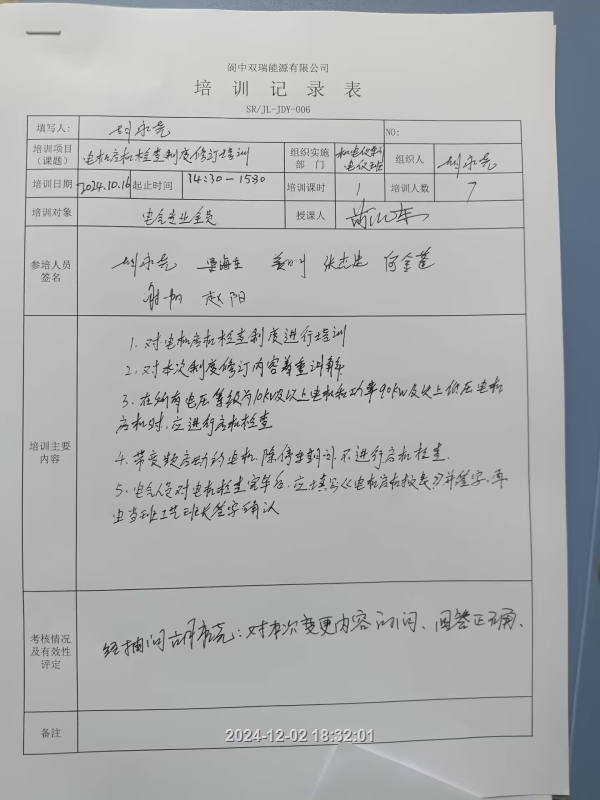 阆中双瑞能源有限公司
培训记录表
SR/JL-JDY-006
填写人: 刘永亮 NO:
培训项目（课题） 电机启机检查制度修订培训 组织实施部门 机电仪车间电仪班 组织人 刘永亮
培训日期 2024.10.16 起止时间 14:30-1530 培训课时 1 培训人数 7
培训对象 电气专业全员 授课人
参培人员签名 刘永亮 梁海东 张杰忠 何金莲
赵阳
培训主要内容
1、对电机启机检查制度进行培训
2、对本次制度修订内容着重讲解
3、在所有电压等级为10kV及以上电机和功率90kW及以上低压电机
启机时,应进行启机检查
4、带变频启动的电机,除停车期间,不进行启机检查.
5、电气人员对电机检查完毕后,应填写《电机启机报表》并签字,再
由当班工艺班长签字确认
考核情况及有效性评定 经抽问 :对本次变更内容 问、回答正确、
备注
2024-12-02 18:32:01